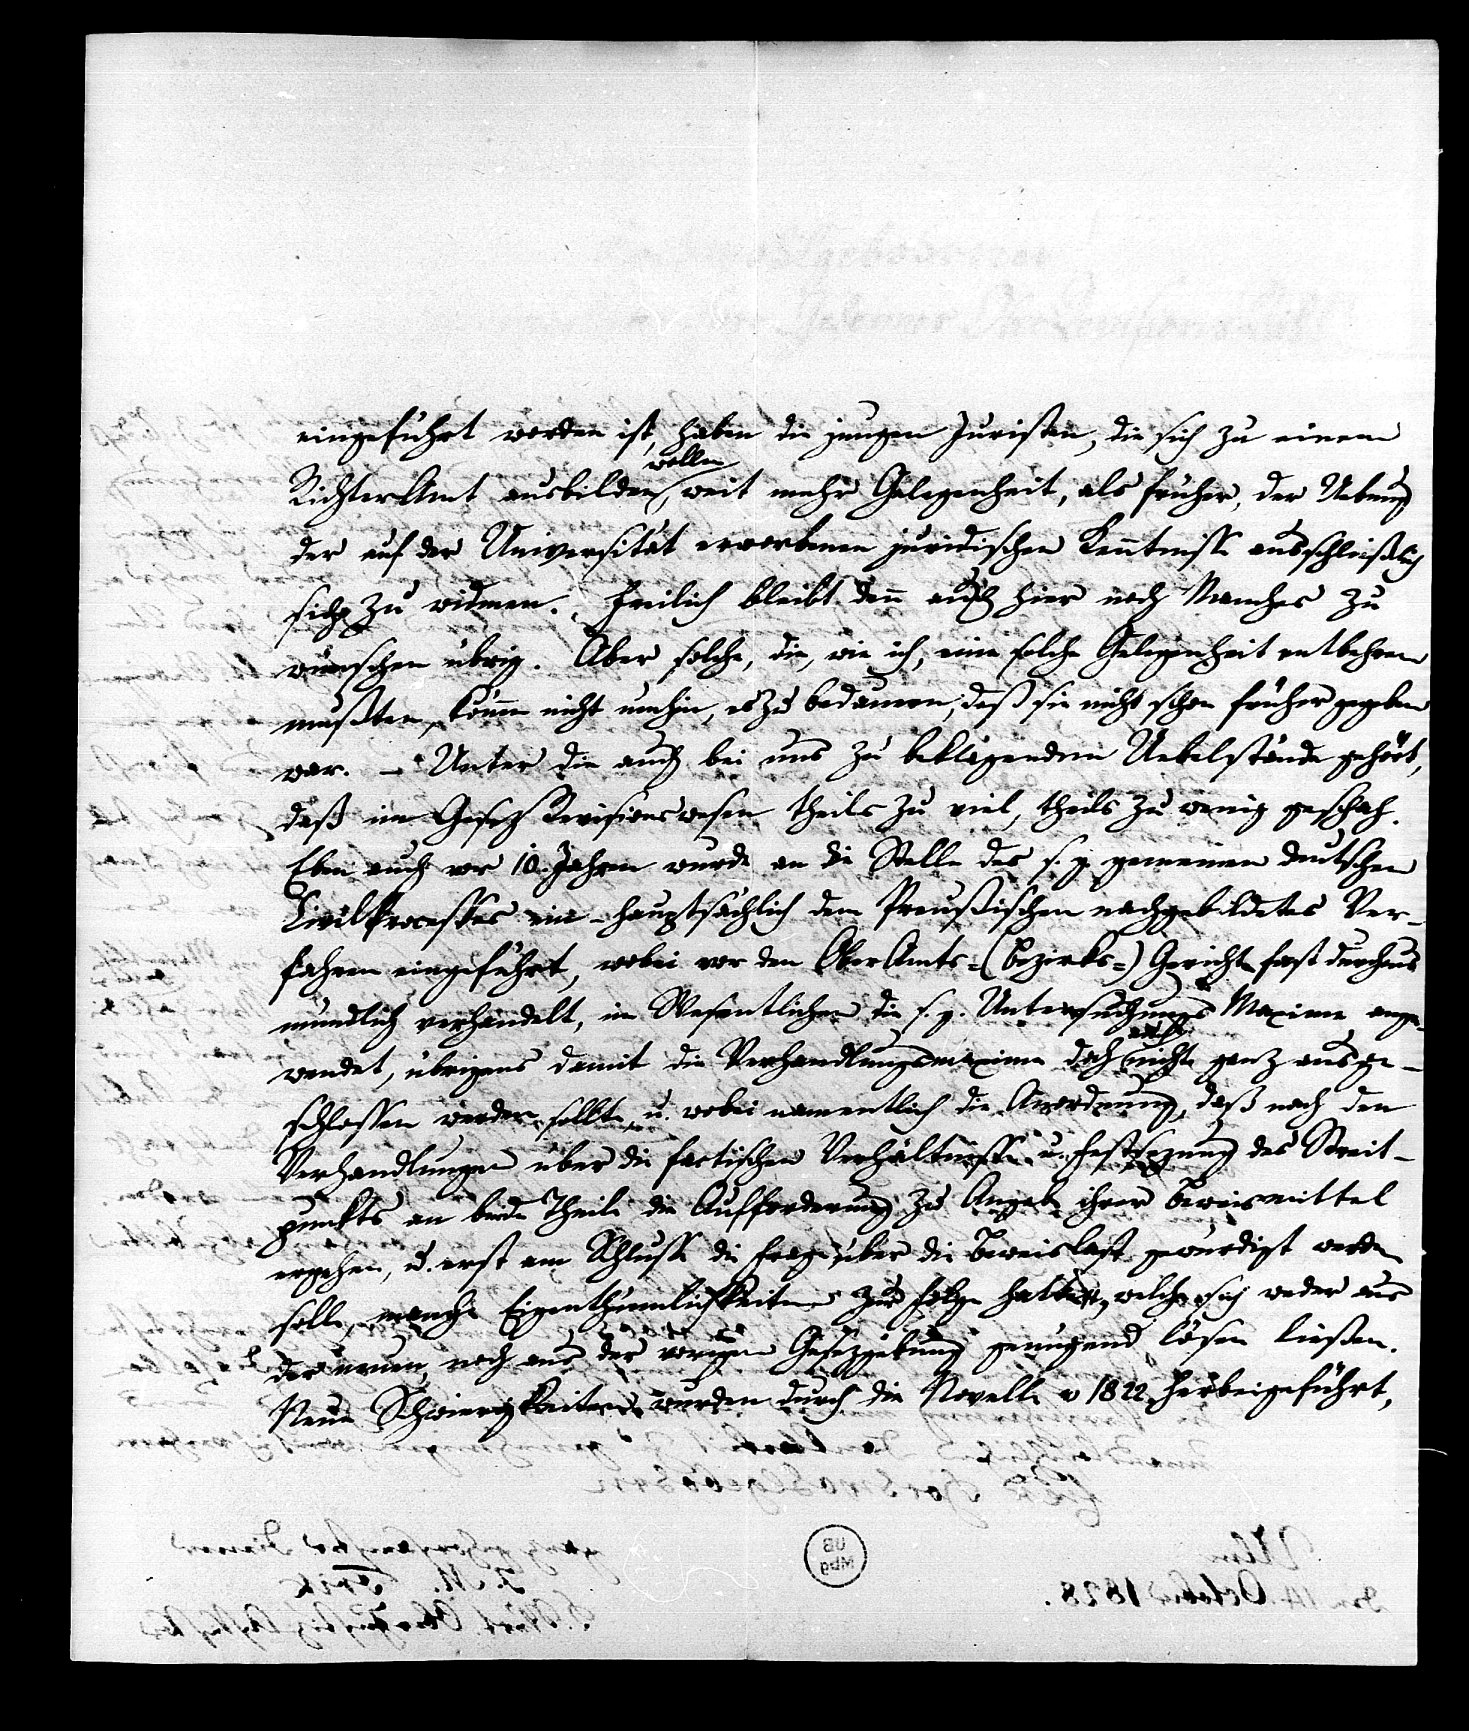 eingeführt worden ist, haben die jungen Juristen, die sich zu einem
RichterAmt ausbilden wollen, weit mehr Gelegenheit, als früher, der Uebung
der auf der Universität erworbenen juridischen Kenntnisse ausschließlich
sich zu widmen. Freilich bleibt denn auch hier noch Manches zu
wünschen übrig. Aber solche, die, wie ich, eine solche Gelegenheit entbehren
mußten, können nicht umhin, es zu bedauern, daß sie nicht schon früher gegeben
war. – Unter die auch bei uns zu beklagenden Uebelstände gehört,
daß im Gesez Revisionswesen theils zu viel, theils zu wenig geschah.
Eben auch vor 10. Jahren wurde an die Stelle des s. g. gemeinen deutschen
CivilProcesses ein – hauptsächlich dem Preußischen nachgebildetes Ver-
fahren eingeführt, wobei vor den OberAmts-(Bezirks-) Gerichten fast durchaus
mündlich verhandelt, im Wesentlichen die s. g. Untersuchungs Maxime ange-
wendet, übrigens damit die Verhandlungsmaxime doch auch nicht ganz ausge-
schlossen werden sollte, u. wobei namentlich die Anordnung, daß nach den
Verhandlungen über die factischen Verhältnisse u. Festsezung des Streit-
punkts an beide Theile die Aufforderung zu Angabe ihrer Beweismittel
ergehen, u. erst am Schlusse die Frage über die Beweislast gewürdigt werden
solle, manche Eigenthümlichkeiten zur Folge hatte, welche sich weder aus
der neuen, noch aus der vorigen Gesezgebung genügend lösen ließen.
Neue Schwierigkeiten wurden durch die Novelle v 1822. herbeigeführt,
UB
Mbg